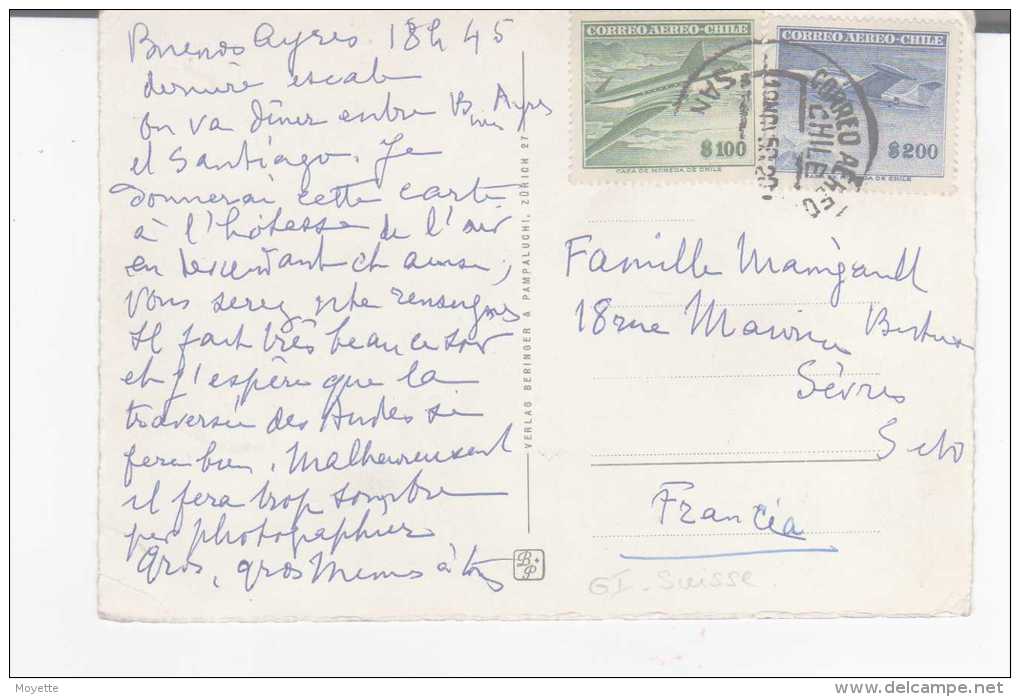 Buenos Ayres 18h45
dernière escale
on va dîner entre B. Ayres
et Santiago. Je
donnerai cette carte
à l'hôtesse de l'air
en descendant et ainsi
vous serez vite renseignés
Il fait très beau ce soir
et j'espère que la
traversée des Andes se
fera bien. Malheureusement
il fera trop sombre
pr photographier
Gros, gros à ts
VERLAG BERINGER & PAMPALUCHI, ZÜRICH 27
B+P
CORREO AEREO-CHILE
$100
CASA DE MONEDA DE CHILE
CORREO AEREO-CHILE
$200
CASA DE MONEDA DE CHILE
SAN
CORREO AEREO
CHILE
Famille Mainigault
18 rue Maurice Berteaux
Sèvres
S et O
Francia
GI-Suisse
Moyette
delcampe.net